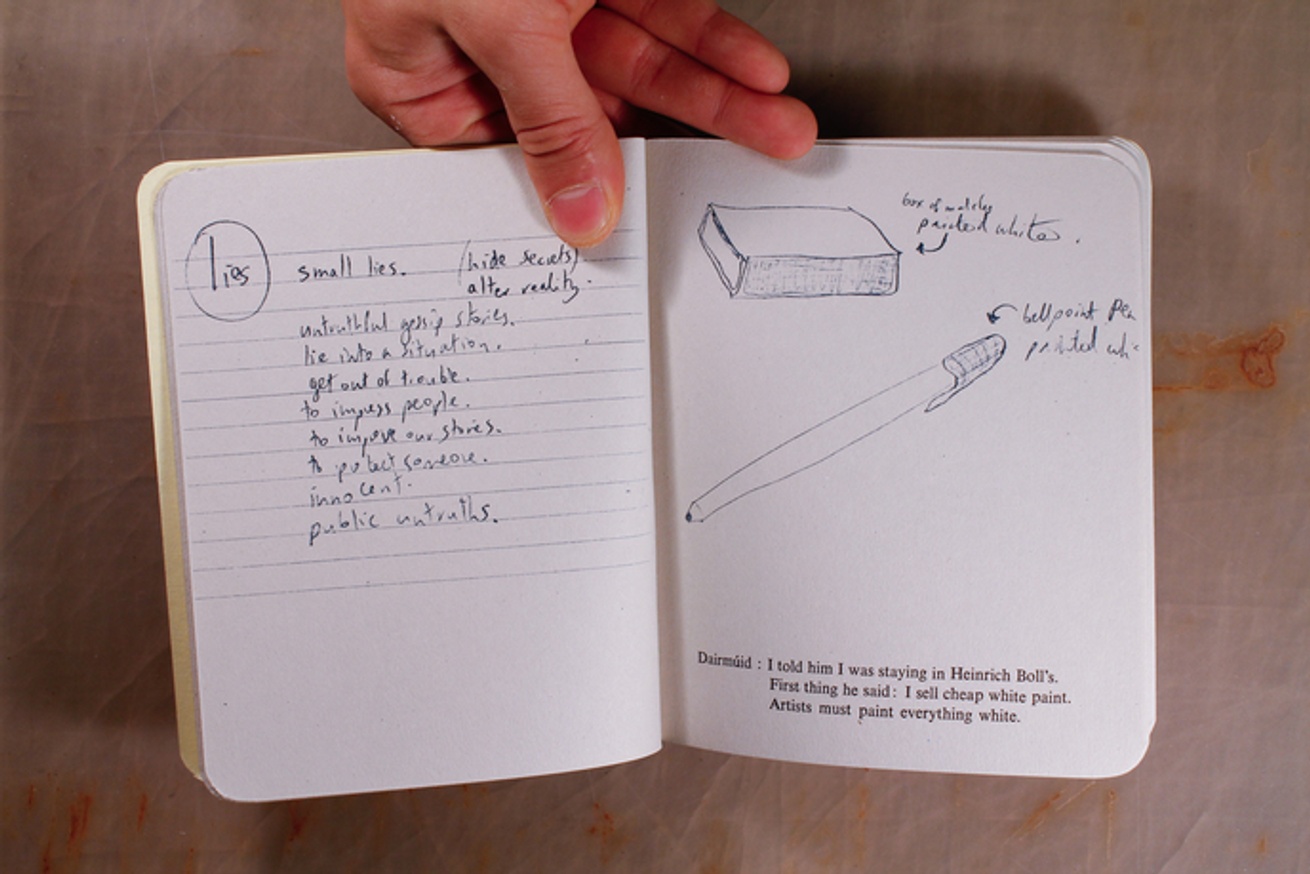 lies
small lies. (hide secrets)
alter reality.
untruthful gossip stories.
lie into a situation.
get out of trouble.
to impress people.
to improve our stories.
to protect someone.
innocent.
public untruths.
box of matches
painted white.
bellpoint Pen
painted whi
Dairmúid : I told him I was staying in Heinrich Boll's.
First thing he said: I sell cheap white paint.
Artists must paint everything white.